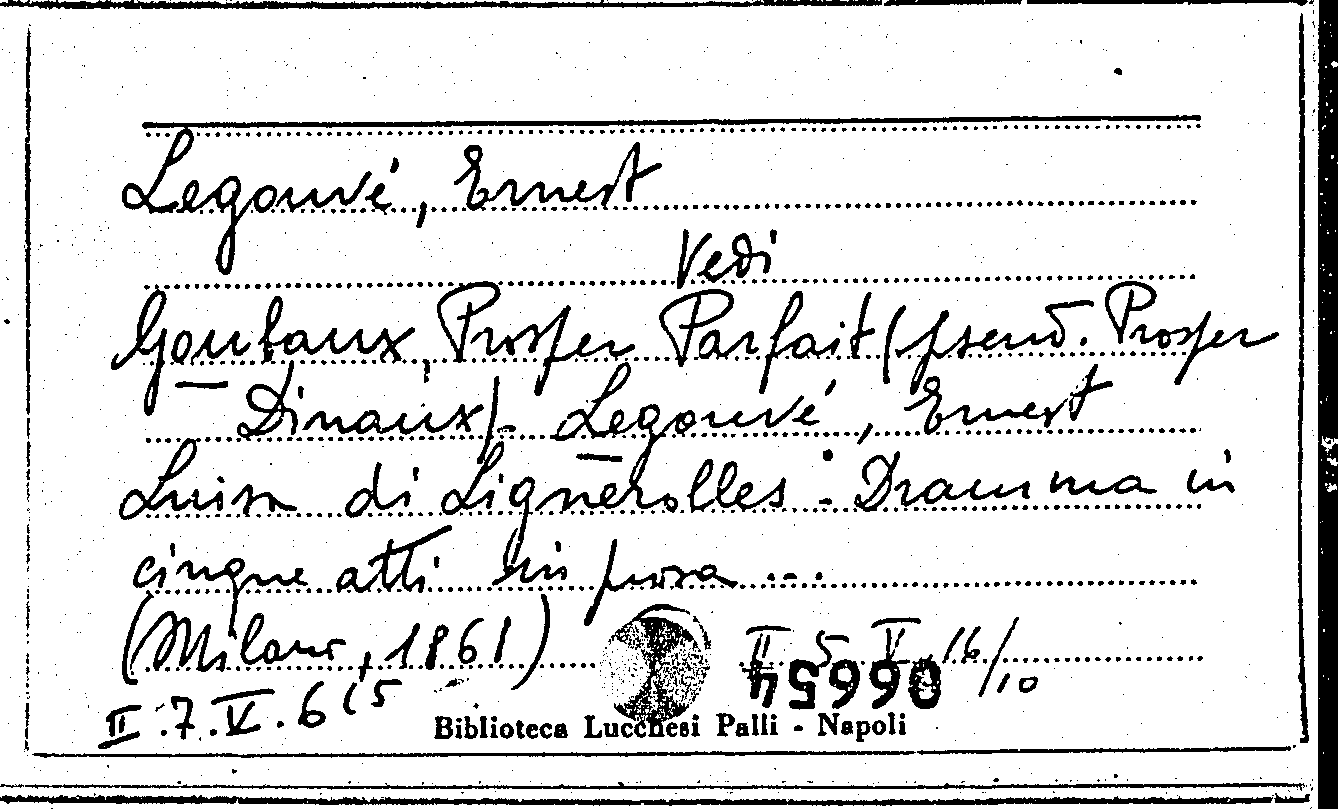 Legouvé, Ernest
Vedi
Goubaux, Prosper Parfait (pseud. Prosper
Dinaux) - Legouvé, Ernest
Luisa di Lignerolles - Dramma in
cinque atti in prosa ...
(Milano, 1861)
II 5 V 16/10
06654
II.7.V.6(5
Biblioteca Lucchesi Palli - Napoli